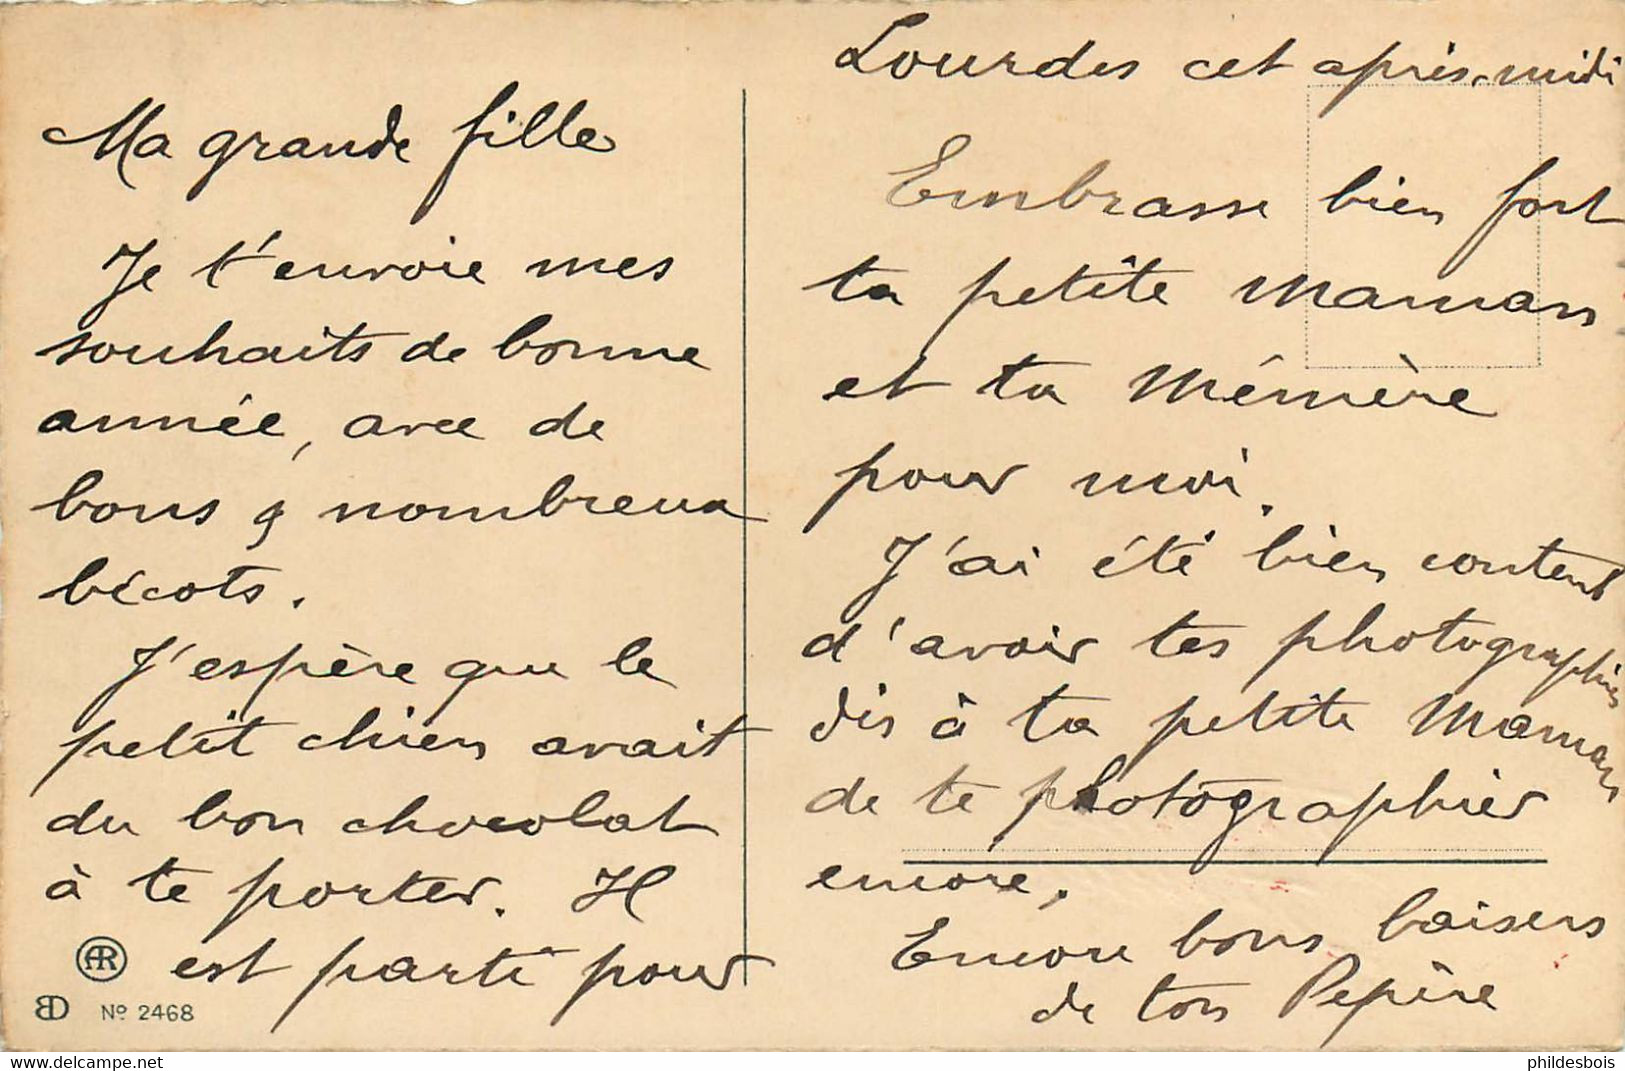 Ma grande fille
Je t'envoie mes
souhaits de bonne
année, avec de
bons & nombreux
bécots.
J'espère que le
petit chien avait
du bon chocolat
à te porter. Il
est parti pour
AR
BD Nº 2468
Lourdes cet après-midi
Embrasse bien fort
ta petite Maman
et ta Mémère
pour moi.
J'ai été bien content
d'avoir tes photographies
dis à ta petite Maman
de te photographier
encore.
Encore bons baisers
de ton Pépère
phildesbois